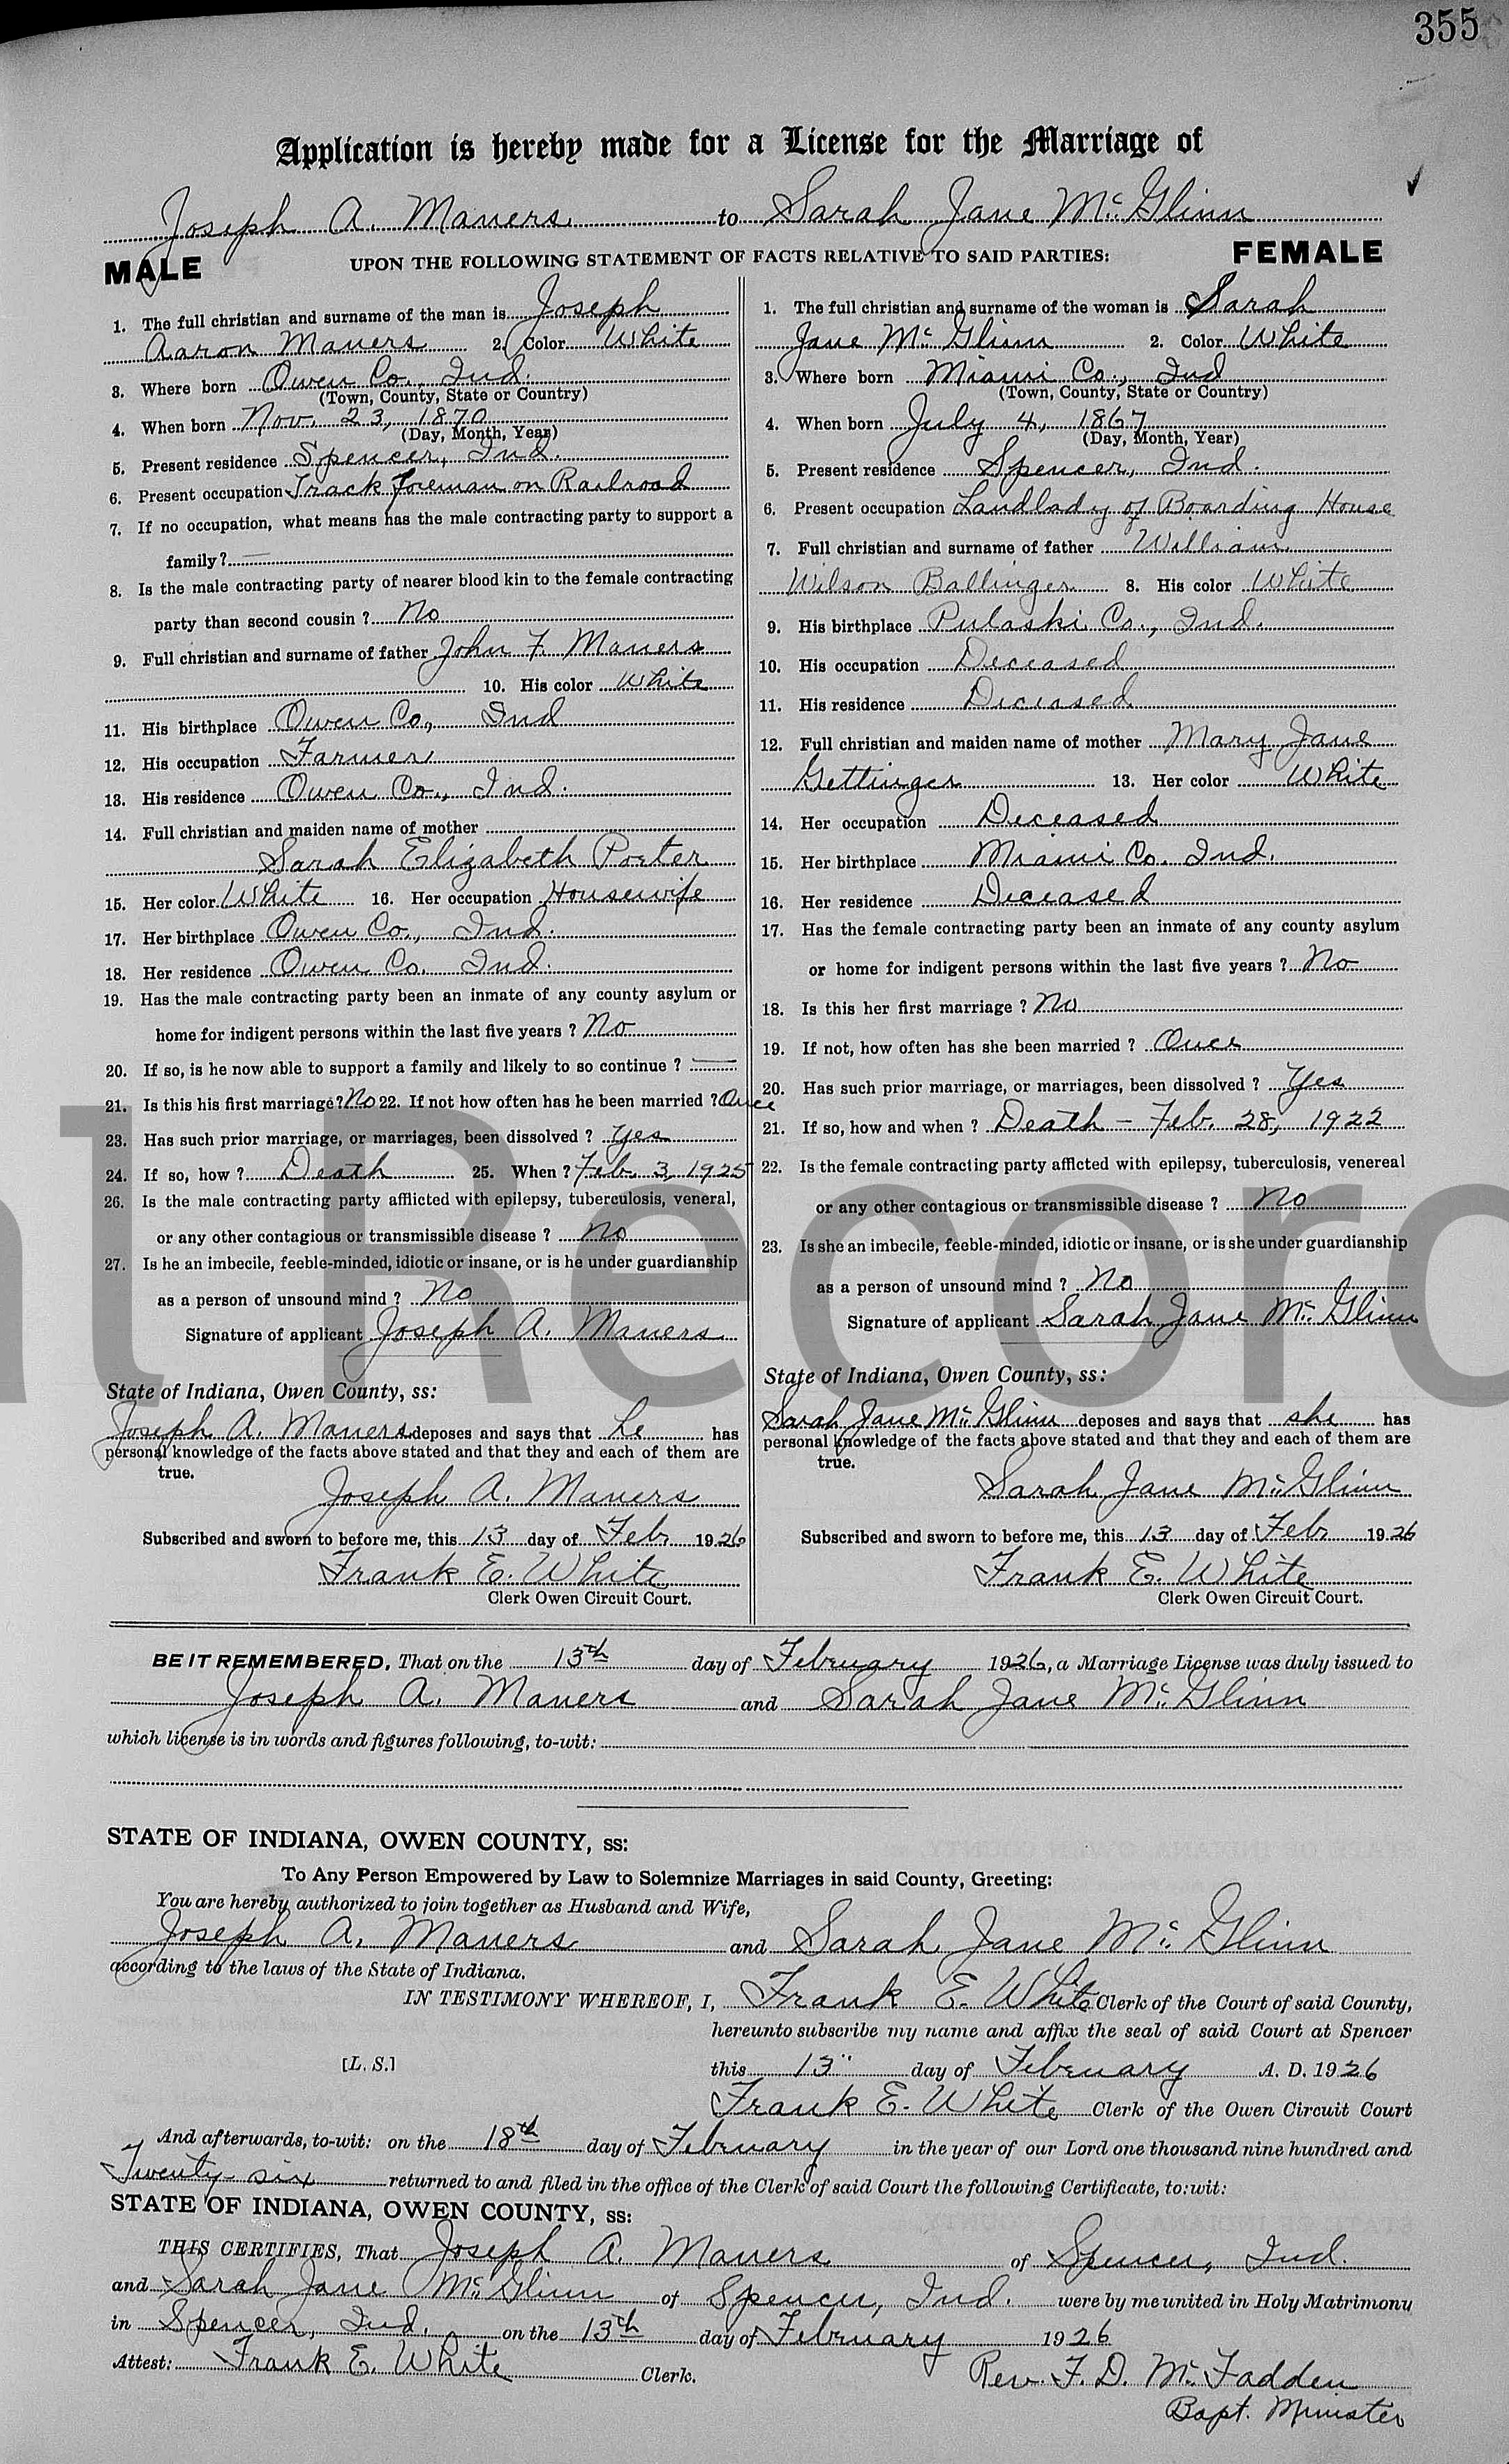 355
Application is hereby made for a License for the Marriage of
Joseph A. Maners to Sarah Jane McGlinn
MALE UPON THE FOLLOWING STATEMENT OF FACTS RELATIVE TO SAID PARTIES: FEMALE
1. The full christian and surname of the man is Joseph
Aaron Maners 2. Color White
3. Where born Owen Co., Ind.
(Town, County, State or Country)
4. When born Nov. 23, 1870
(Day, Month, Year)
5. Present residence Spencer, Ind.
6. Present occupation Track Foreman on Railroad
7. If no occupation, what means has the male contracting party to support a
family? —
8. Is the male contracting party of nearer blood kin to the female contracting
party than second cousin ? No
9. Full christian and surname of father John F. Maners
10. His color White
11. His birthplace Owen Co., Ind
12. His occupation Farmer
13. His residence Owen Co., Ind.
14. Full christian and maiden name of mother
Sarah Elizabeth Porter
15. Her color White 16. Her occupation Housewife
17. Her birthplace Owen Co., Ind.
18. Her residence Owen Co. Ind.
19. Has the male contracting party been an inmate of any county asylum or
home for indigent persons within the last five years ? No
20. If so, is he now able to support a family and likely to so continue ? —
21. Is this his first marriage? No 22. If not how often has he been married ? Once
23. Has such prior marriage, or marriages, been dissolved ? Yes
24. If so, how ? Death 25. When ? Feb. 3, 1925
26. Is the male contracting party afflicted with epilepsy, tuberculosis, veneral,
or any other contagious or transmissible disease ? No
27. Is he an imbecile, feeble-minded, idiotic or insane, or is he under guardianship
as a person of unsound mind ? No
Signature of applicant Joseph A. Maners
State of Indiana, Owen County, ss:
Joseph A. Maners deposes and says that he has
personal knowledge of the facts above stated and that they and each of them are
true.
Joseph A. Maners
Subscribed and sworn to before me, this 13 day of Feb 1926
Frank E. White
Clerk Owen Circuit Court.
1. The full christian and surname of the woman is Sarah
Jane McGlinn 2. Color White
3. Where born Miami Co., Ind
(Town, County, State or Country)
4. When born July 4, 1867
(Day, Month, Year)
5. Present residence Spencer, Ind.
6. Present occupation Landlady of Boarding House
7. Full christian and surname of father William
Wilson Ballinger 8. His color White
9. His birthplace Pulaski Co., Ind.
10. His occupation Deceased
11. His residence Deceased
12. Full christian and maiden name of mother Mary Jane
Gettinger 13. Her color White
14. Her occupation Deceased
15. Her birthplace Miami Co. Ind.
16. Her residence Deceased
17. Has the female contracting party been an inmate of any county asylum
or home for indigent persons within the last five years ? No
18. Is this her first marriage ? No
19. If not, how often has she been married ? Once
20. Has such prior marriage, or marriages, been dissolved ? Yes
21. If so, how and when ? Death — Feb. 28, 1922
22. Is the female contracting party afflcted with epilepsy, tuberculosis, venereal
or any other contagious or transmissible disease ? No
23. Is she an imbecile, feeble-minded, idiotic or insane, or is she under guardianship
as a person of unsound mind ? No
Signature of applicant Sarah Jane McGlinn
State of Indiana, Owen County, ss:
Sarah Jane McGlinn deposes and says that she has
personal knowledge of the facts above stated and that they and each of them are
true.
Sarah Jane McGlinn
Subscribed and sworn to before me, this 13 day of Feb 1926
Frank E. White
Clerk Owen Circuit Court.
BE IT REMEMBERED, That on the 13th day of February 1926, a Marriage License was duly issued to
Joseph A. Maners and Sarah Jane McGlinn
which license is in words and figures following, to-wit:
STATE OF INDIANA, OWEN COUNTY, ss:
To Any Person Empowered by Law to Solemnize Marriages in said County, Greeting:
You are hereby authorized to join together as Husband and Wife,
Joseph A. Maners and Sarah Jane McGlinn
according to the laws of the State of Indiana.
IN TESTIMONY WHEREOF, I, Frank E. White Clerk of the Court of said County,
hereunto subscribe my name and affix the seal of said Court at Spencer
[L. S.] this 13" day of February A. D. 1926
Frank E. White Clerk of the Owen Circuit Court
And afterwards, to-wit: on the 18th day of February in the year of our Lord one thousand nine hundred and
Twenty-six returned to and filed in the office of the Clerk of said Court the following Certificate, to:wit:
STATE OF INDIANA, OWEN COUNTY, ss:
THIS CERTIFIES, That Joseph A. Maners of Spencer, Ind.
and Sarah Jane McGlinn of Spencer, Ind. were by me united in Holy Matrimony
in Spencer, Ind. on the 13th day of February 1926
Attest: Frank E. White Clerk. Rev. F. D. McFadden
Bapt. Minister
l Recor